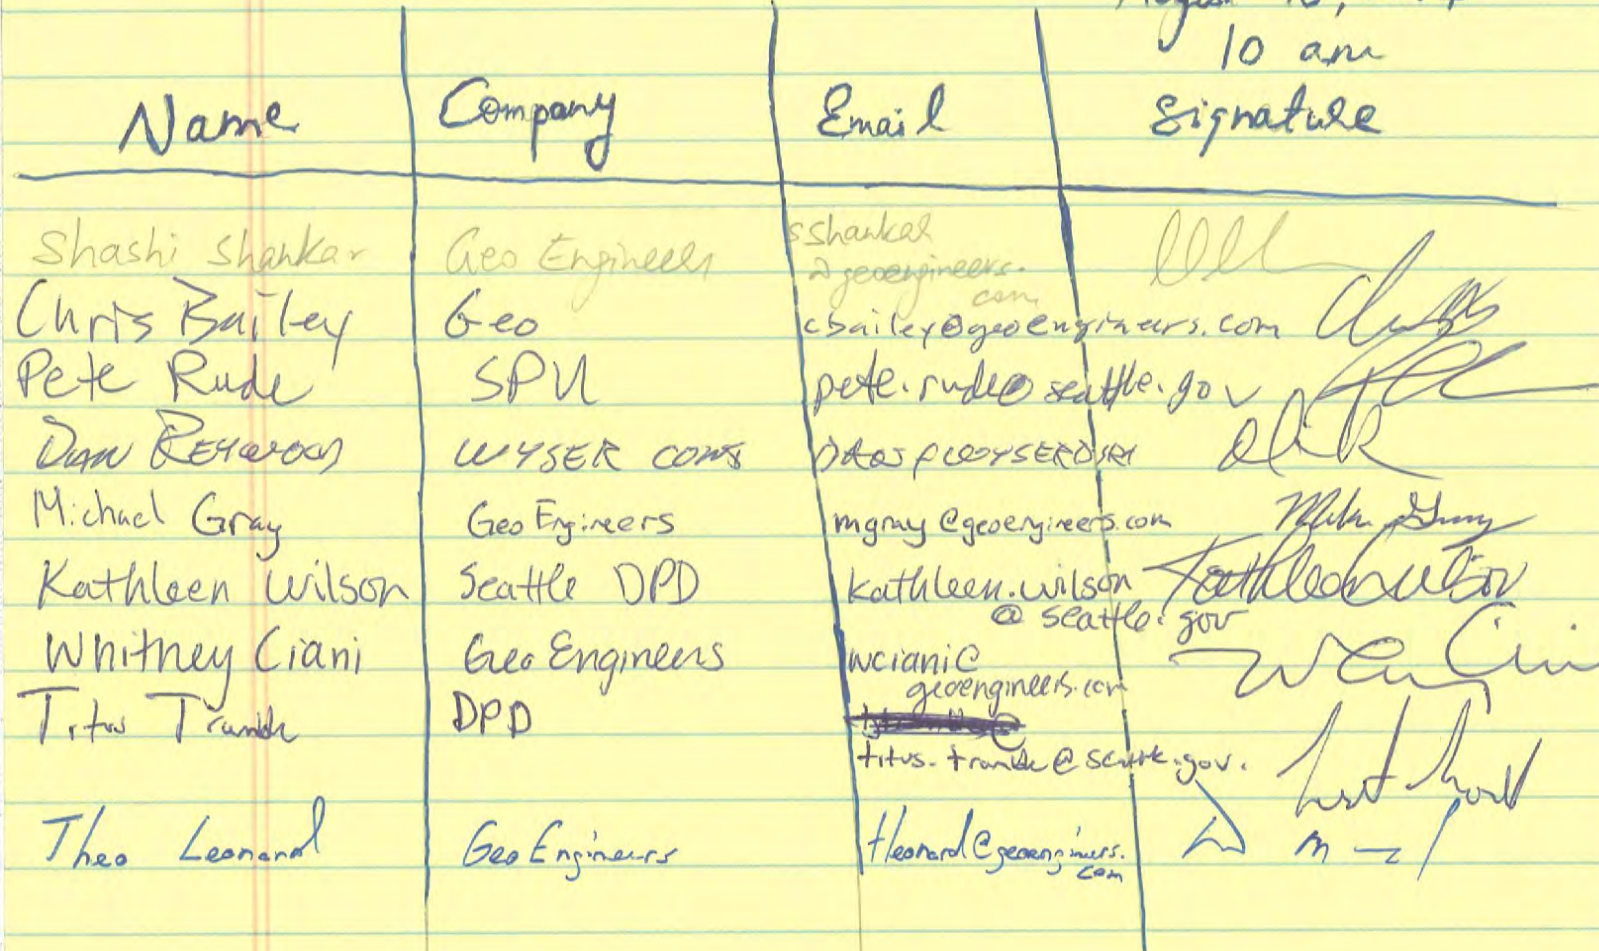 10 am
Name Company Email Signature
Shashi Shankar Geo Engineers sshankar
@geoengineers.
com
Chris Bailey Geo cbailey@geoengineers.com
Pete Rude SPU pete.rude@seattle.gov
Dan WYSER
Michael Gray GeoEngineers mgray@geoengineers.com Mike Gray
Kathleen Wilson Seattle DPD kathleen.wilson Kathleen Wilson
@seattle.gov
Whitney Ciani GeoEngineers wciani@
geoengineers.com
Titus DPD
Theo Leonard GeoEngineers tleonard@geoengineers.
com